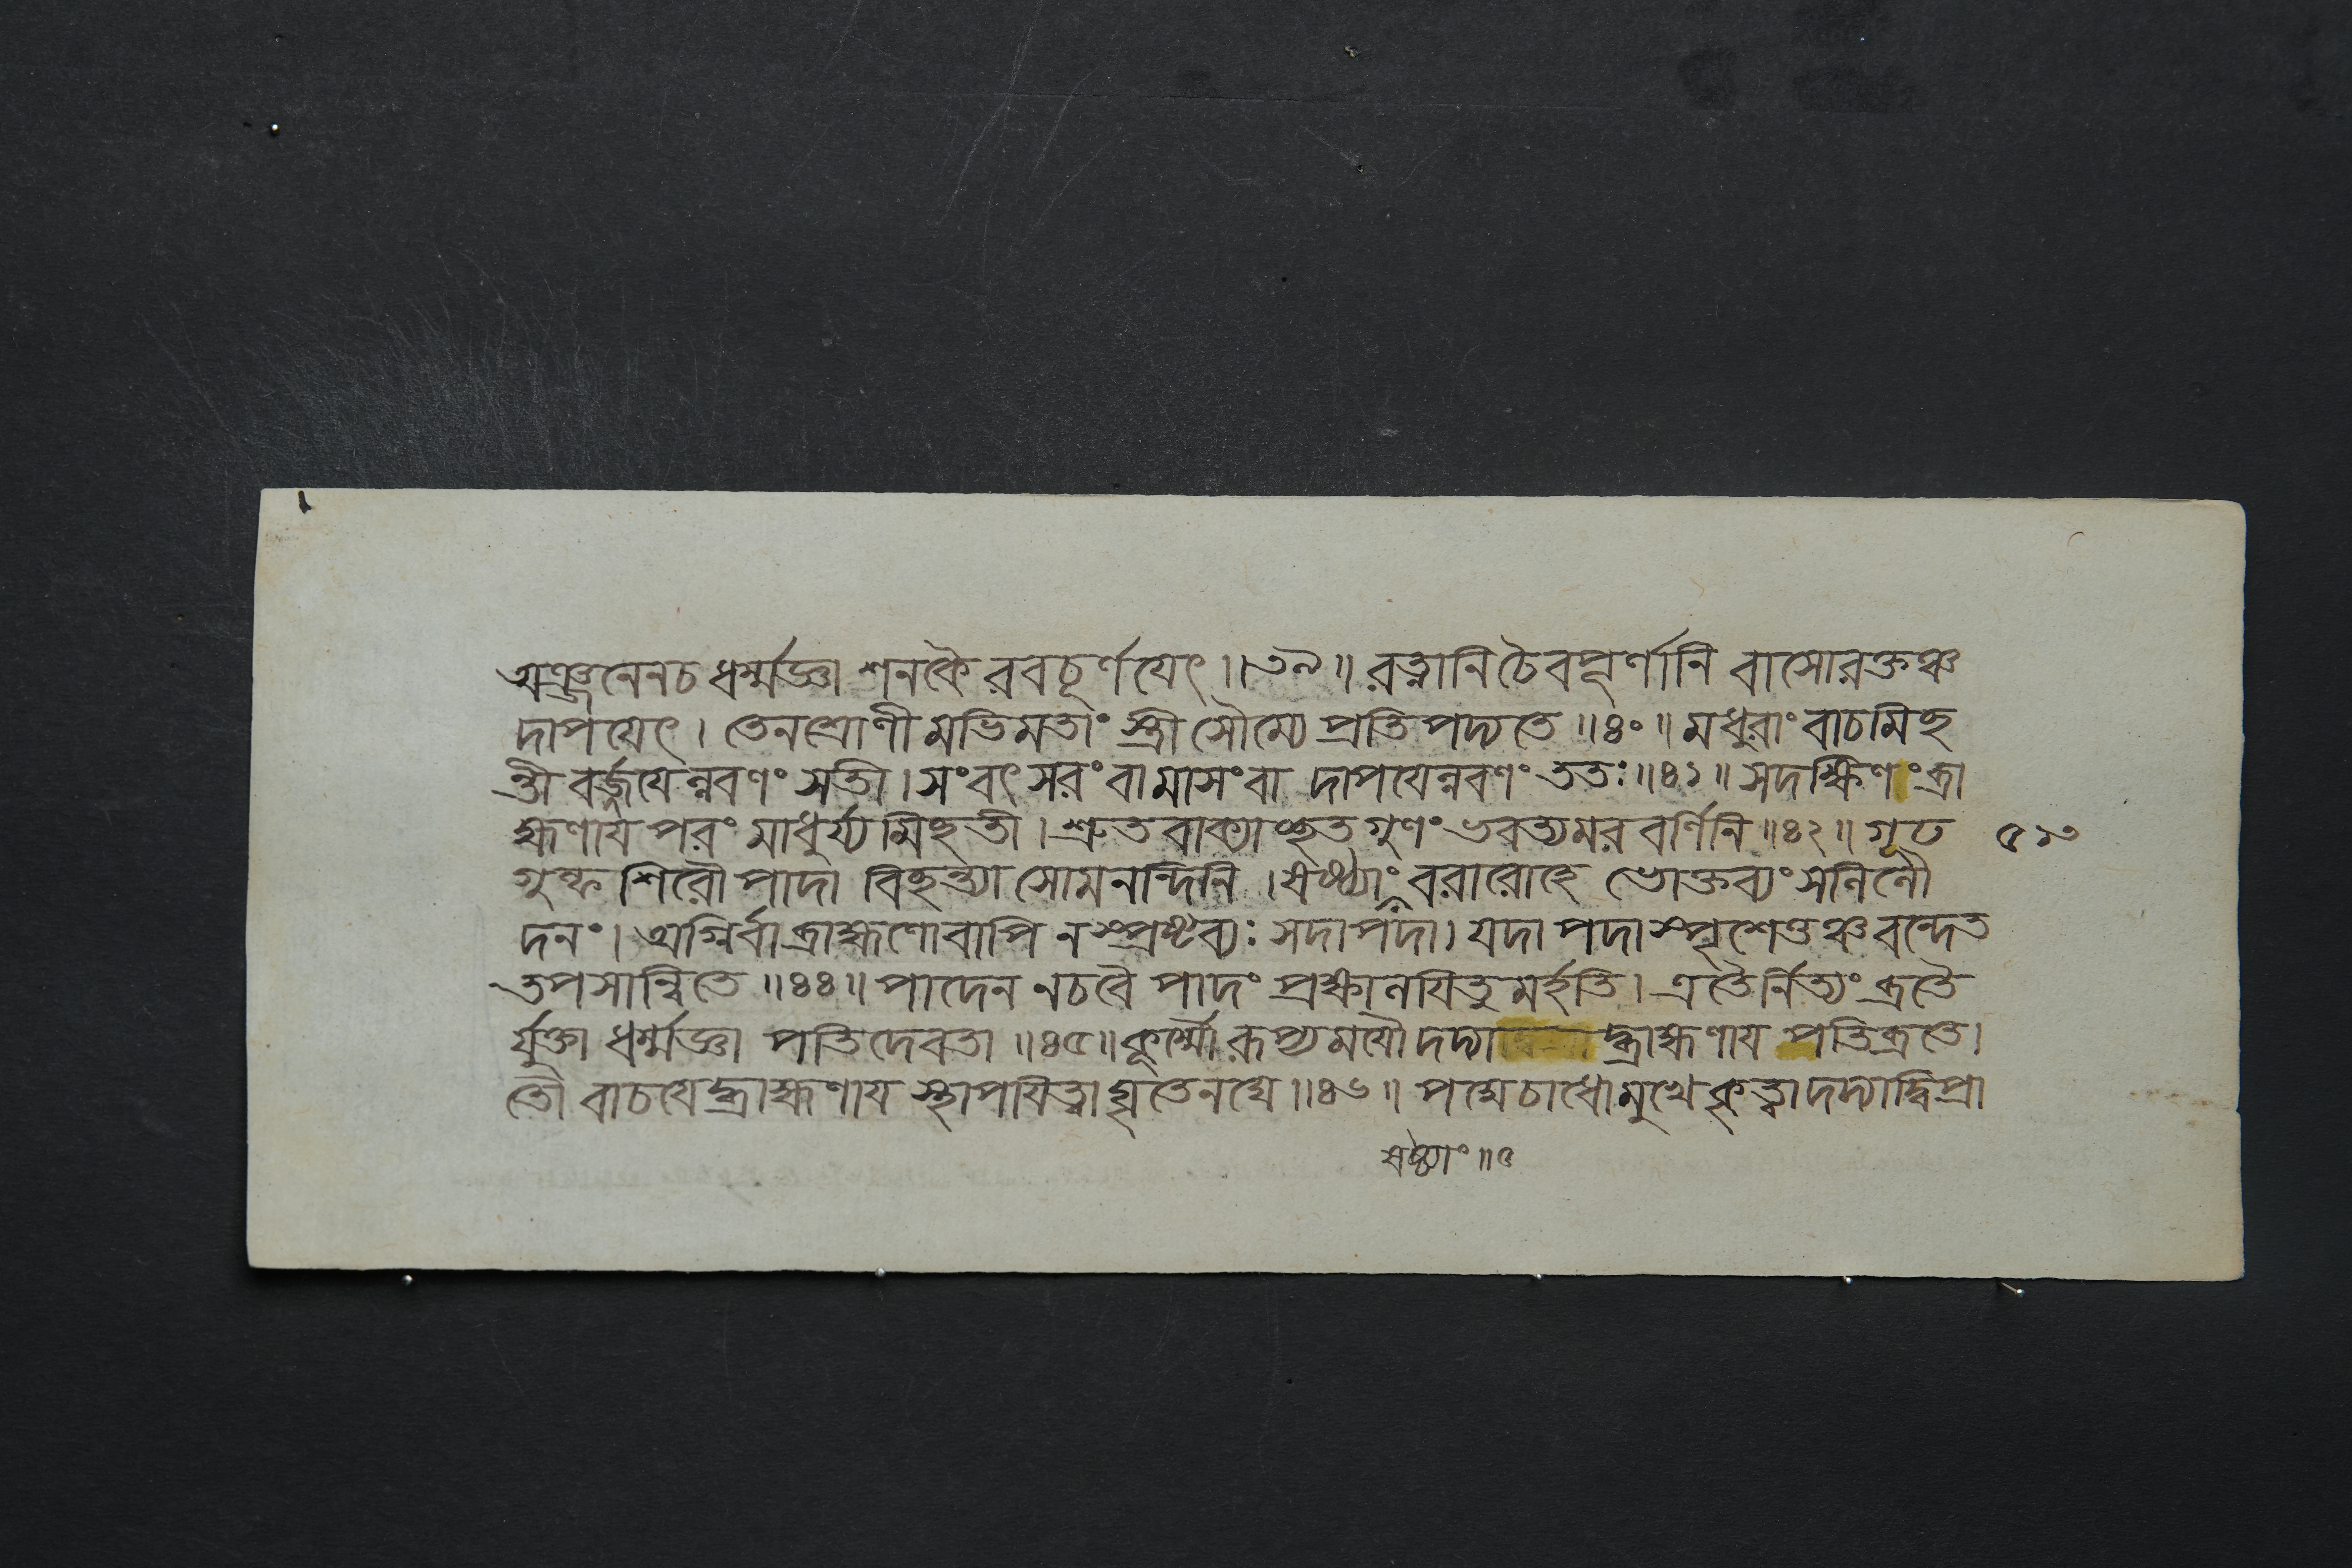 অঞ্জনেনচ ধর্ম্মজ্ঞা শনকৈ রবচূর্ণয়েৎ ॥৩৯॥ রত্নানি চৈবপূর্ণানি বাসোরক্তঞ্চ
দাপয়েৎ । তেনশ্রোণীমভিমতাং স্ত্রী সৌম্যে প্রতিপদ্যতে ॥৪০॥ মধুরাং বাচমিচ্ছ
ন্তী বর্জ্জয়েল্লবণং সতী । সংবৎসরং বা মাসংবা দাপয়েল্লবণং ততঃ ॥৪১॥ সদক্ষিণং ব্রা
হ্মণায় পরং মাধুর্য্যমিচ্ছতী । শ্রুতবাক্যাচ্ছতগুণং ভবত্যমরবর্ণিনি ॥৪২॥ গূঢ ৫১৩
গুল্ফশিরৌ পাদা বিচ্ছন্ত্যা সোমনন্দিনি । ষষ্ঠ্যাং বরারোহে ভোক্তব্যং সলিলৌ
দনং । অগ্নির্বা ব্রাহ্মণোবাপি নস্প্রষ্টব্যঃ সদাপদা । যদা পদাস্পৃশেত্তঞ্চ বন্দেত
তপসান্বিতে ॥৪৪॥ পাদেন নচবৈ পাদং প্রক্ষালয়িতুমর্হতি । এতৈর্নিত্যং ব্রতৈ
র্যুক্তা ধর্ম্মজ্ঞা পতিদেবতা ॥৪৫॥ কূর্ম্মৌ রূপ্যময়ৌ দদ্যা দ্ব্রাহ্মণায় পতিব্রতে ।
তৌ বাচয়েদ্ব্রাহ্মণায় স্থাপয়িত্বা ঘৃতেনঘে ॥৪৬॥ পদ্মেচাধোমুখে কৃত্বা দদ্যাদ্বিপ্রা
ষষ্ঠ্যাং ॥৫